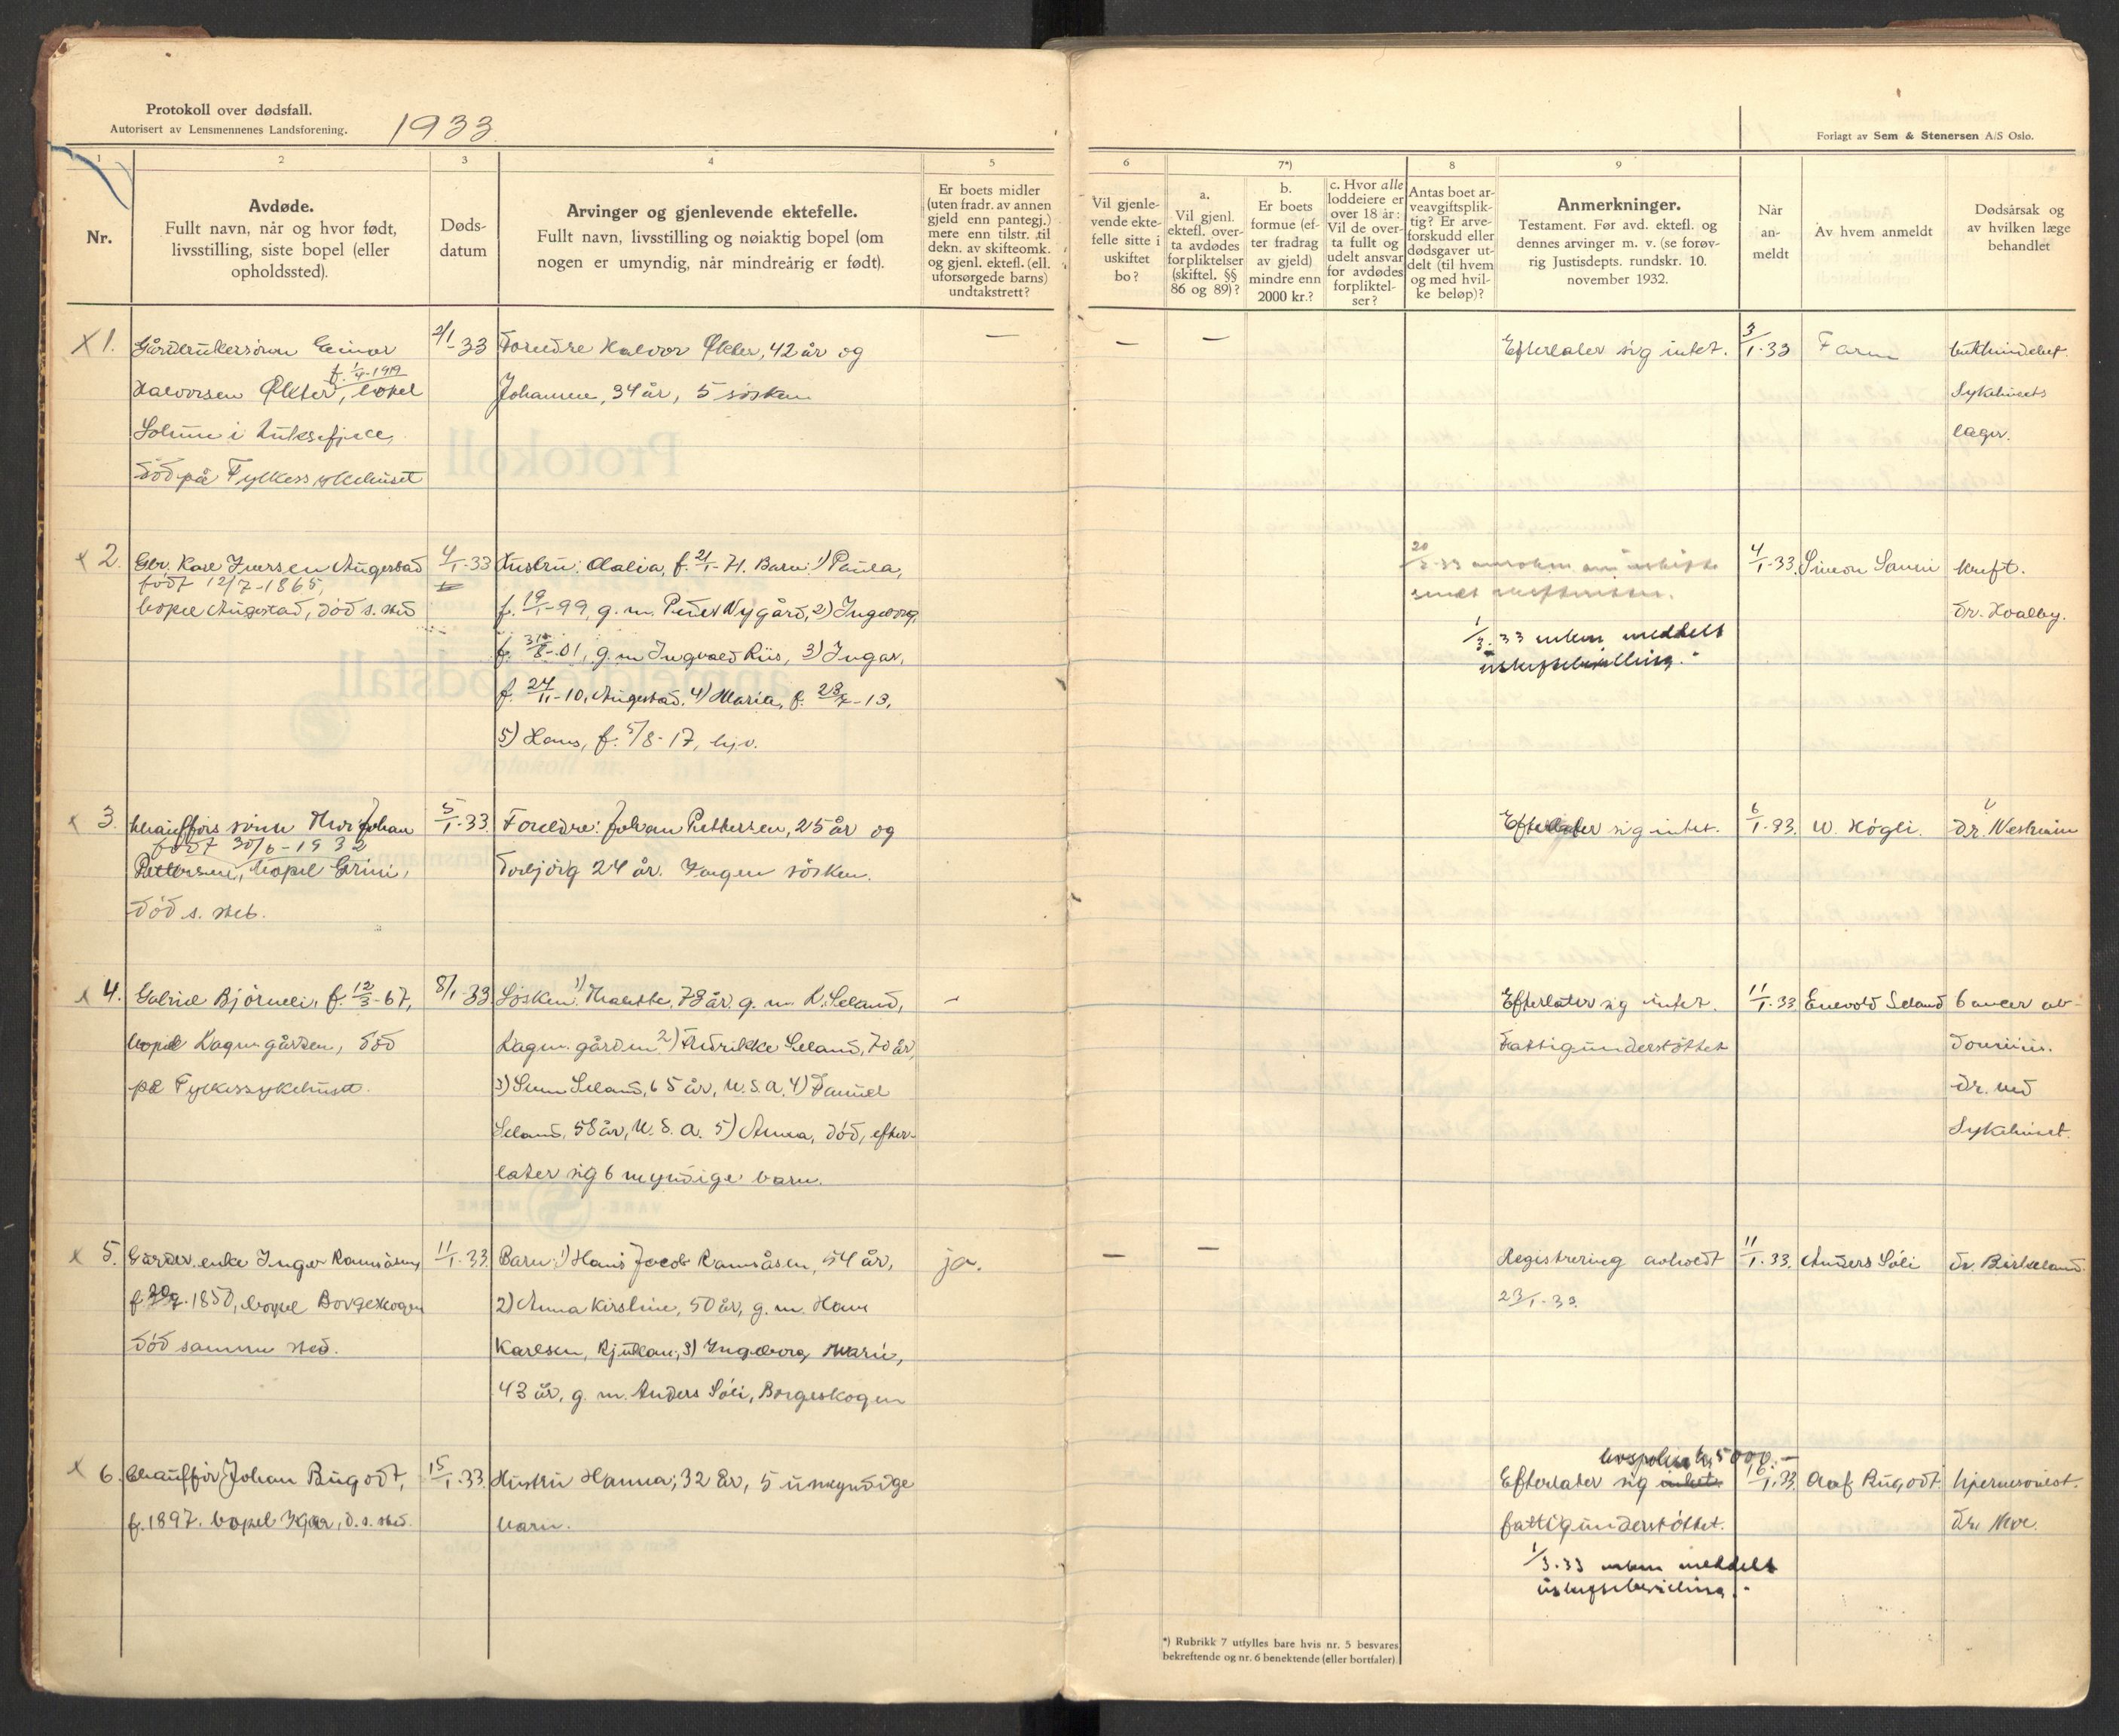 Protokoll over dødsfall.
Autorisert av Lensmennenes Landsforening.
1933.
Forlagt av Sem & Stenersen A/S Oslo.
1
2
3
4
5
6
7*)
8
9
Nr.
Avdøde.
Fullt navn, når og hvor født,
livsstilling, siste bopel (eller
opholdssted).
Døds-
datum
Arvinger og gjenlevende ektefelle.
Fullt navn, livsstilling og nøiaktig bopel (om
nogen er umyndig, når mindreårig er født).
Er boets midler
(uten fradr. av annen
gjeld enn pantegj.)
mere enn tilstr. til
dekn. av skifteomk.
og gjenl. ektefl. (ell.
uforsørgede barns)
undtakstrett?
Vil gjenle-
vende ekte-
felle sitte i
uskiftet
bo?
a.
Vil gjenl.
ektefl. over-
ta avdødes
forpliktelser
(skiftel. §§
86 og 89)?
b.
Er boets
formue (ef-
ter fradrag
av gjeld)
mindre enn
2000 kr.?
c. Hvor alle
loddeiere er
over 18 år:
Vil de over-
ta fullt og
udelt ansvar
for avdødes
forpliktel-
ser?
Antas boet ar-
veavgiftsplik-
tig? Er arve-
forskudd eller
dødsgaver ut-
delt (til hvem
og med hvil-
ke beløp)?
Anmerkninger.
Testament. Før avd. ektefl. og
dennes arvinger m. v. (se forøv-
rig Justisdepts. rundskr. 10.
november 1932.
Når
an-
meldt
Av hvem anmeldt
Dødsårsak og
av hvilken læge
behandlet
x 1.
Einar
f. 1/4-1919
Halvorsen Økter, bopel
Solum i
død på Fylkessykehuset
2/1-33
Foreldre Halvor Økter, 42 år og
Johanne, 34 år, 5 søsken
—
—
—
Efterlater sig intet.
3/1-33
Faren
Sykehusets
læger.
x 2.
Gbr. Karl Iversen Augestad
født 12/7-1865,
bopel Augestad, død s. sted
4/1-33
Hustru: Olalia, f. 21/1-71. Barn: 1) Paula,
f. 19/1-99, g.m. Peder Nygård, 2) Ingeborg,
f. 31/8-01, g.m Ingvald Riis, 3) Ingar,
f. 24/11-10, Augestad. 4) Maria, f. 23/7-13,
5) Hans, f. 5/8-17, hj.v.
20/2-33
1/3.33 enken meddelt
uskiftebevilling.
4/1-33.
Simon
kreft.
dr. Hvalby.
x 3.
Chaufførs sønn Thor Johan
født 30/6-1932
Pettersen, bopel Grini,
død s. sted.
5/1-33.
Foreldre: Johan Pettersen, 25 år og
Torbjørg 24 år. Ingen søsken.
Efterlater sig intet.
6/1-33.
W. Høgli.
Dr.
x 4.
Gabriel Bjørnli, f. 12/3-67,
bopel Kagm.gården, død
på Fylkessykehuset.
8/1-33.
Søsken: 1) 78 år. g.m. K. Seland,
Kagm. gården 2) Fredrikke Seland, 70 år,
3) Seland, 65 år, U.S.A. 4) Daniel
Seland, 58 år, U.S.A. 5) Anna, død, efter-
later sig 6 myndige barn.
—
Efterlater sig intet.
Fattigunderstøttet
11/1-33
Enevold Seland
dr. ved
Sykehuset.
x 5.
Gårdbr. enke Inger Ramsåsen,
1850, bopel Borgeskogen
død samme sted.
11/1-33.
Barn: 1) Hans Jacob Ramsåsen, 54 år,
2) Anna Kirstine, 50 år, g.m. Hans
Karlsen, Rjukan, 3) Ingeborg Marie,
43 år, g.m. Anders Sóli, Borgeskogen
ja.
—
—
Registrering avholdt
23/1-33.
11/1-33.
Anders Sóli
dr. Birkeland.
x 6.
Chauffør Johan Rugodt,
f. 1897. bopel d.s. sted.
15/1-33.
Hustru Hanna, 32 år, 5 umyndige
barn.
livspolise kr. 5000.-
Efterlater sig intet.
fattigunderstøttet.
1/3.33 enken meddelt
uskiftebevilling.
16/1.33.
Olaf Rugodt.
hjernesvulst.
dr. Moe.
*) Rubrikk 7 utfylles bare hvis nr. 5 besvares
bekreftende og nr. 6 benektende (eller bortfaler).